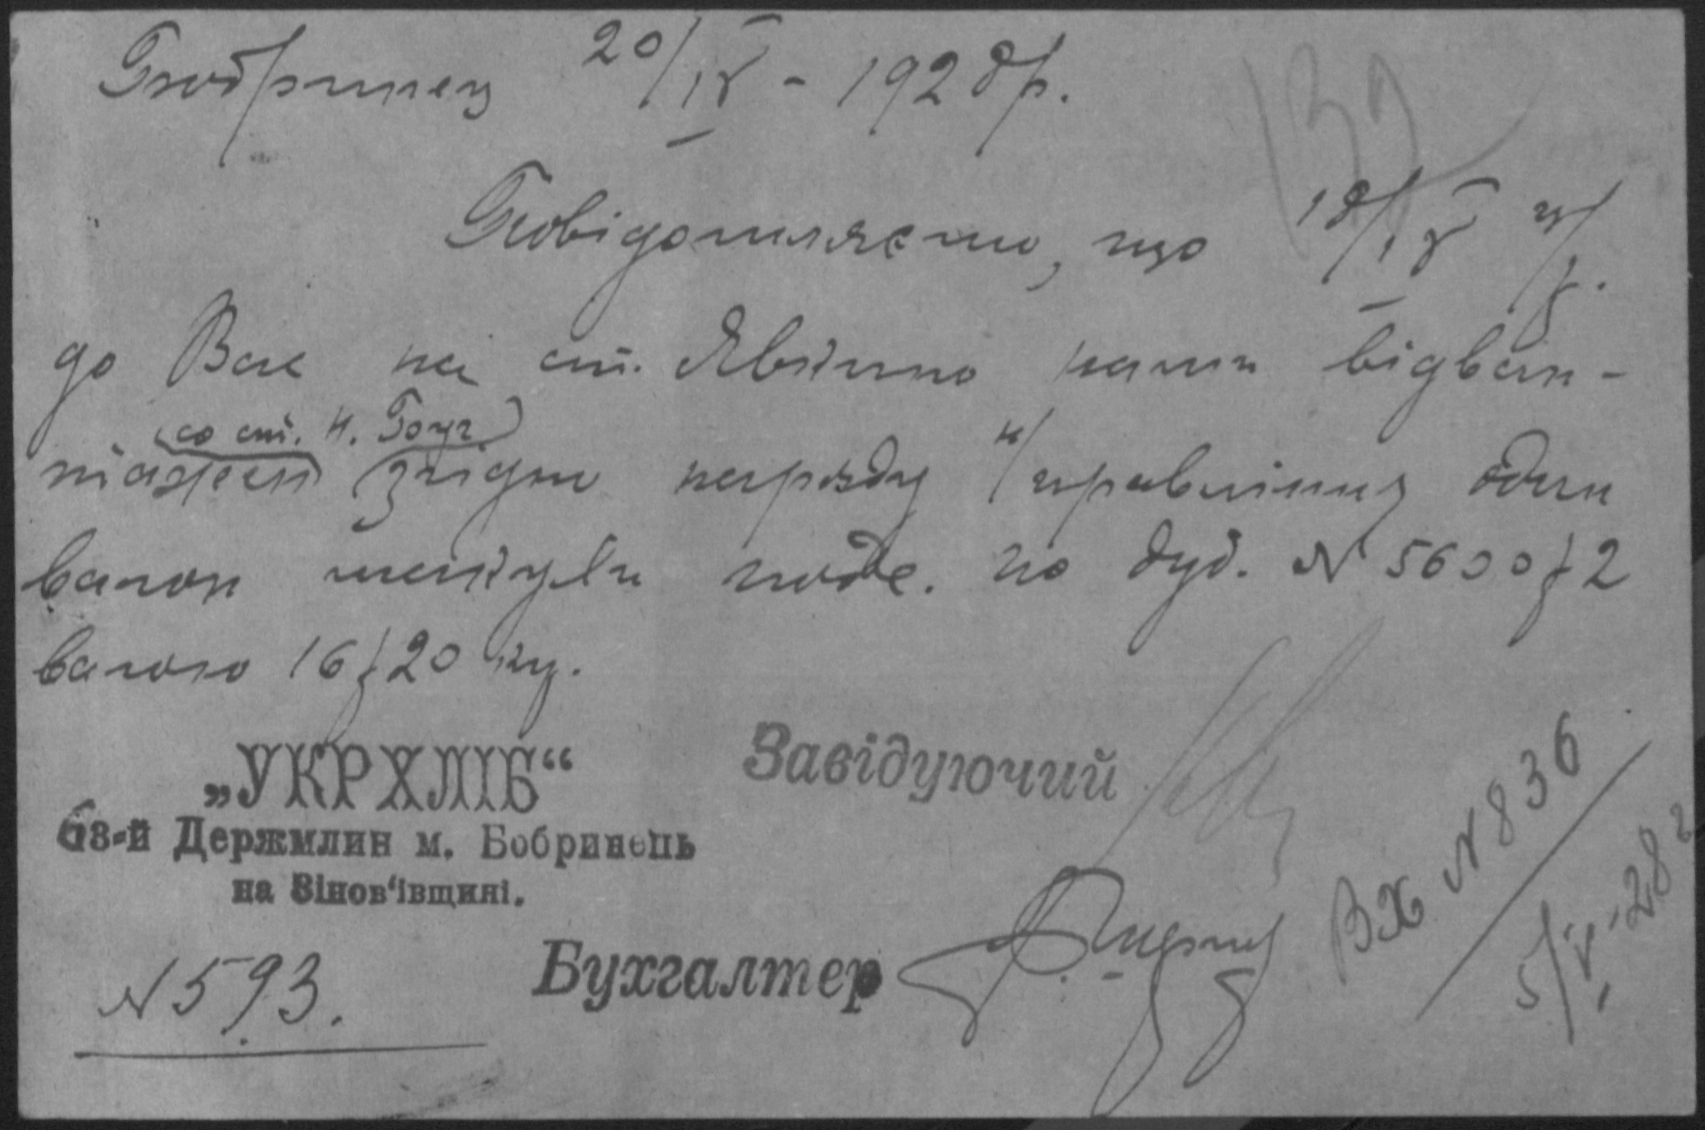 Бобринец 20/IV - 1928 р.
132
Повідомляємо, що 18/IV ц/р.
до Вас на ст. Явкино нами відван-
(со ст. Н. Буг)
тажен згідно наряду н/правління один
вагон по дуб. № 5600/2
вагою 16/20 кг.
„УКРХЛІБ“
63-й Держмлин м. Бобринець
на Зінов‘ївщині.
Завідуючий
№ 593.
Бухгалтер
Вх № 836
5/V-28 г